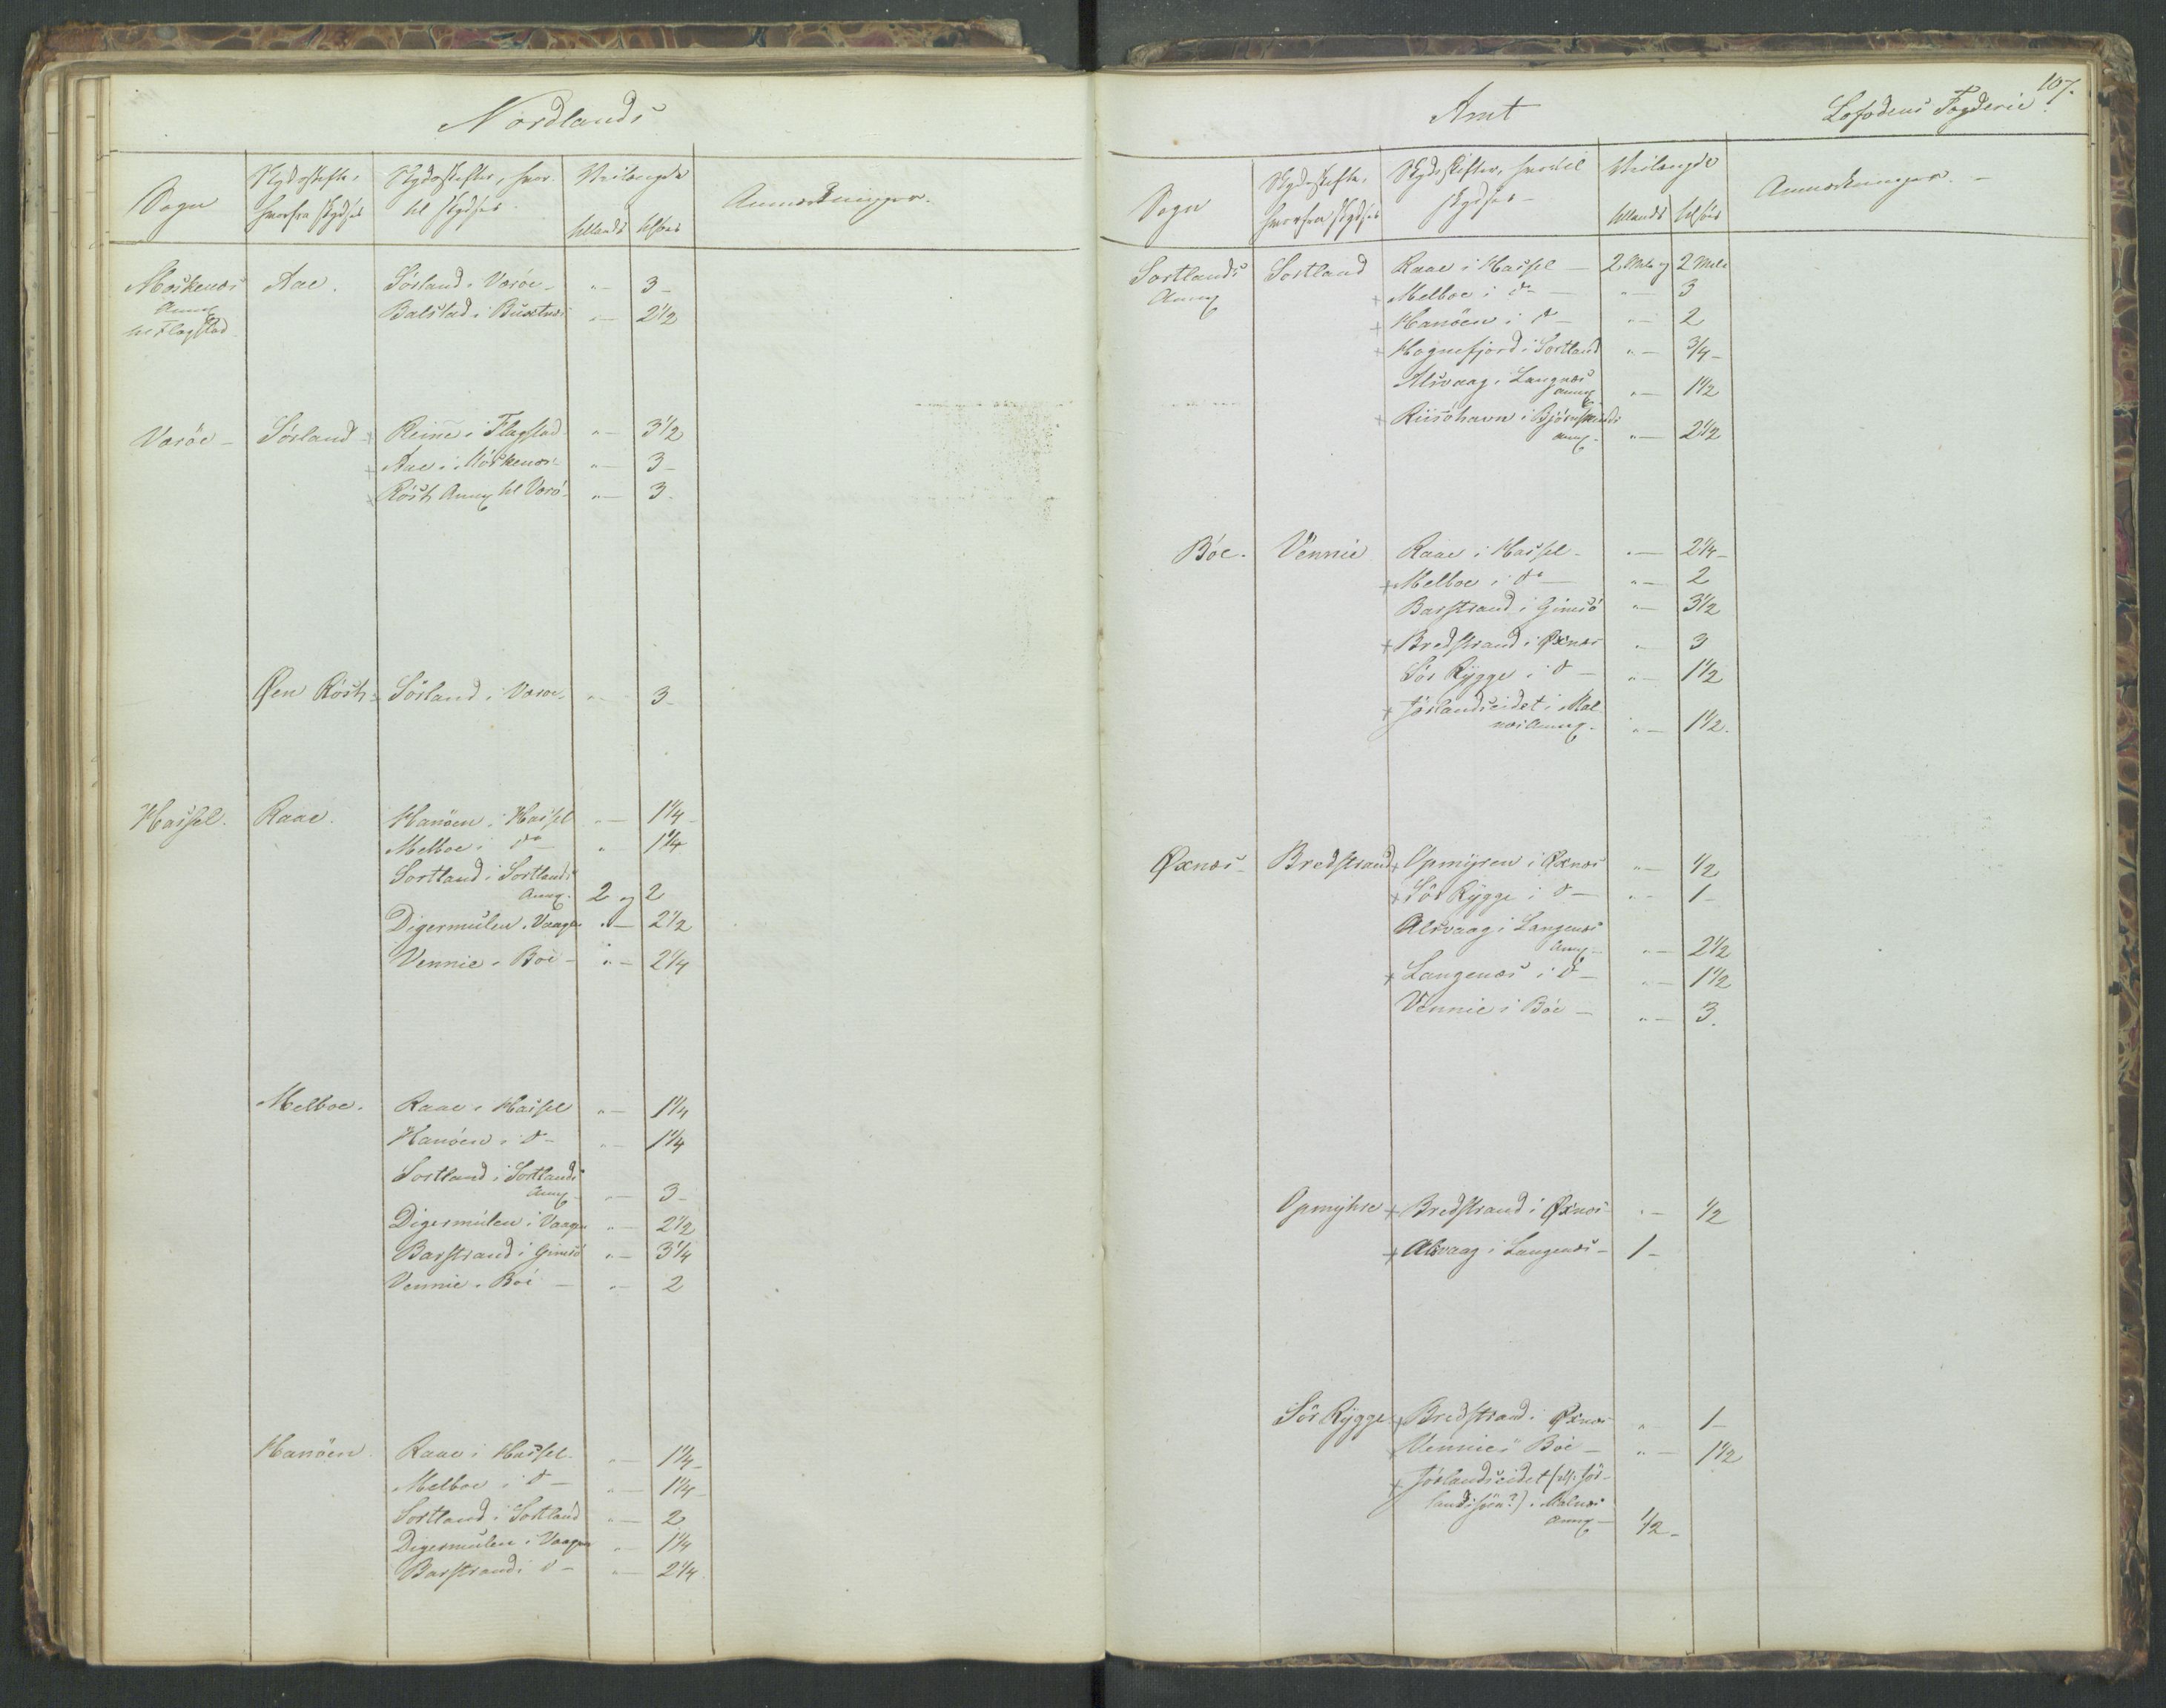 Nordlands
Sogn | Skydsskifte, hvorfra skydses | Skydsskifter, hvortil skydses | Veilængde tillands | tilsøes | Anmærkninger.
Moskenæs Annex til Flagstad | Aae. | Sörland i Værøe | " — | 3 —
Balstad i Buxnæs | " — | 2 1/2
Værøe — | Sörland | + Reine i Flagstad | " — | 3 1/2
+ Aae i Moskenæs | " — | 3 —
+ Röst, Annex til Værö | " — | 3.
Øen Röst | Sörland i Værøe | " — | 3 —
Hassel. | Raae. | Hanöen i Hassel | " — | 1 1/4 —
Melboe i do | " | 1 1/4
Sortland i Sortlands
Annex. | 2 og | 2
Digermulen i Vaagen | " — | 2 1/2
Vennie i Böe — | " — | 2 1/4
Melboe. | Raae i Hassel | " — | 1 1/4
Hanöen i do — | " — | 1 1/4
Sortland i Sortlands
Annex — | " — | 3 —
Digermulen i Vaagen | " — | 2 1/2
Barstrand i Gimsö | " — | 3 1/4
Vennie i Böe — | " — | 2
Hanöen. | Raae i Hassel | " — | 1 1/4 —
Melboe i do — | " — | 1 1/4 —
Sortland i Sortland | " — | 2
Digermulen i Vaagen | " — | 1 1/4
Barstrand i do — | " — | 2 1/4
107.
Amt
Lofodens Fogderie.
Sogn | Skydsskifte, hvorfra skydses | Skydsskifter, hvortil skydses — | Veilængde tillands | tilsøes | Anmærkninger. —
Sortlands Annex | Sortland | Raae i Hassel — | 2 Mile og | 2 Mile
+ Melboe i do — | " — | 3
+ Hanöen i do — | " — | 2
+ Hognfjord i Sortland | " — | 3/4 —
Alsvaag i Langenæs
Annex | " — | 1 1/2
+ Risöhavn i Bjørnskinds
Annex. | " — | 2 1/2
Böe. | Vennie | Raae i Hassel — | " — | 2 1/4 —
+ Melboe i do — | " — | 2
Barstrand i Gimsö | " — | 3 1/2
+ Bredstrand i Øxnæs | " — | 3
Sör Rygge i do — | " — | 1 1/2
+ Jörlandseidet i Mal-
næs Annex. | " — | 1 1/2.
Øxnæs — | Bredstrand | + Opmyren i Øxnæs | " — | 1/2
+ Sör Rygge i do — | " — | 1 —
Alsvaag i Langenæs
Annex — | " — | 2 1/2
+ Langenæs i do — | " — | 1 1/2
Vennie i Böe — | " — | 3.
Opmyhre | + Bredstrand i Øxnæs | " — | 1/2
+ Alsvaag i Langenæs — | 1 —
Sör Rygge | + Bredstrand i Øxnæs | " — | 1 —
+ Vennie i Böe — | " — | 1 1/2
+ Jörlandseidet ( Jör-
lands ?) i Malnæs
Annex — | 1/2 —